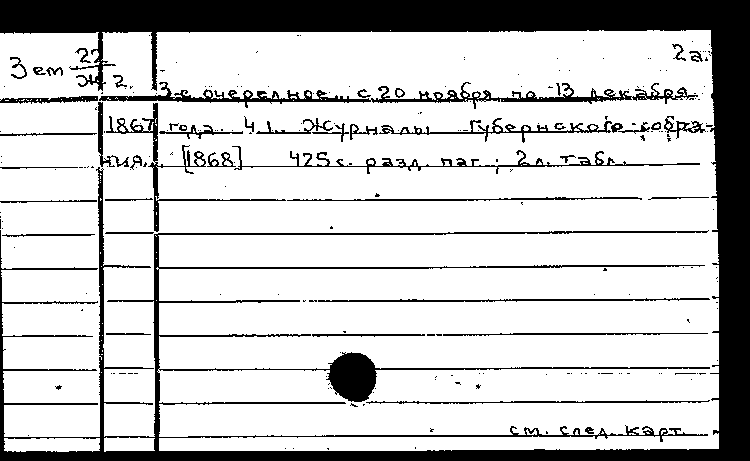 2а.
Зем 22
Ж 2.
3-е очередное.. с 20 ноября по 13 декабря
1867 года. Ч 1. Журналы Губернского собра-
ния. [1868] 425 с. разд. паг.; 2 л. табл.
см. след. карт.